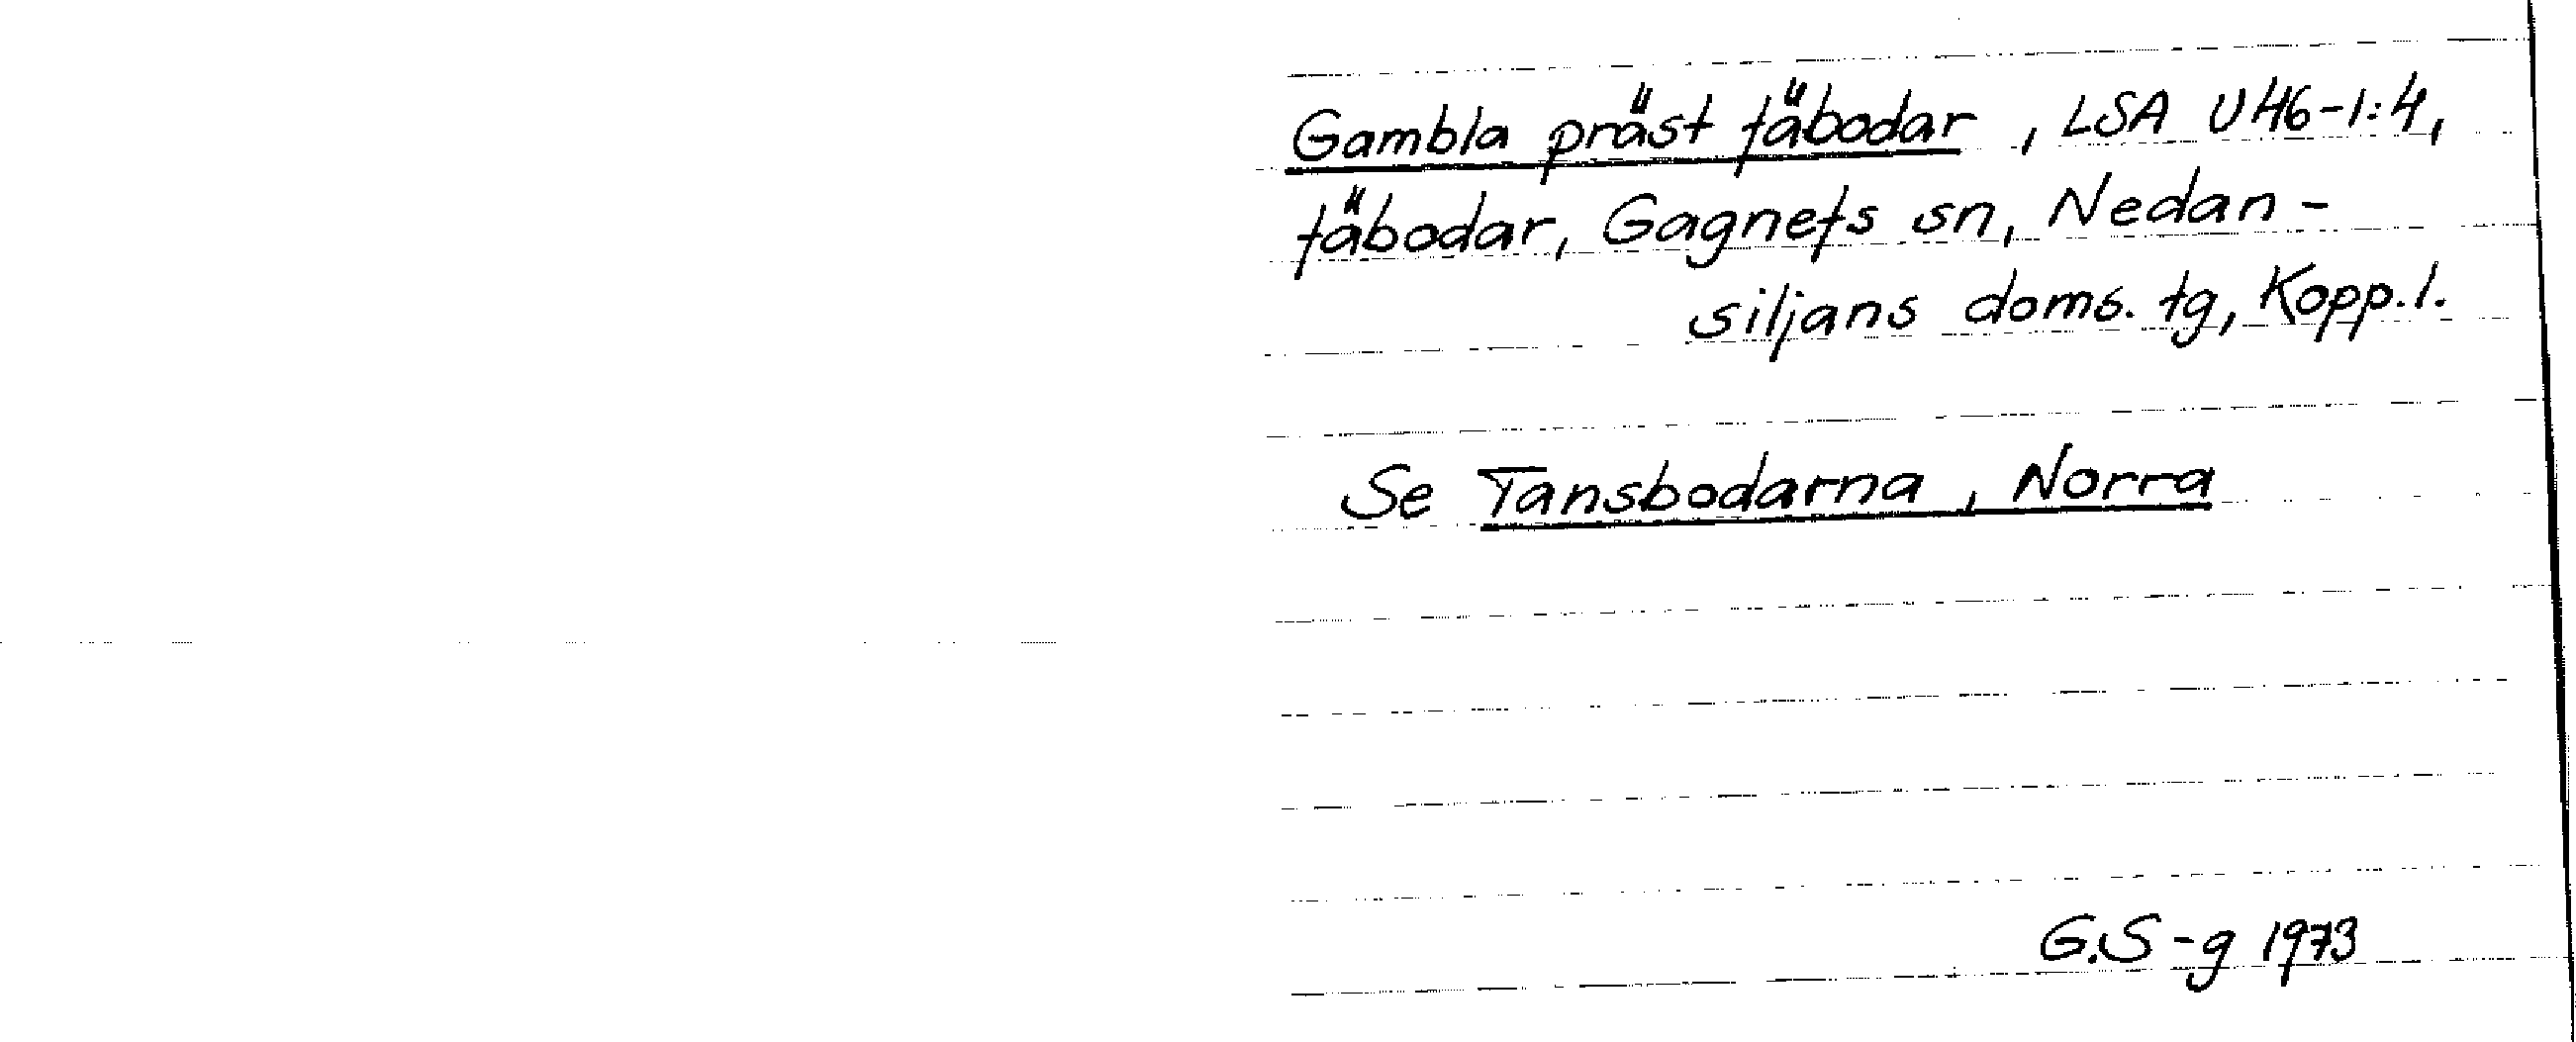 Gambla präst fäbodar, LSA U46-1:4,
fäbodar, Gagnefs sn, Nedan-
siljans doms. tg, Kopp.l.
Se Tansbodarna, Norra
G.S-g 1973